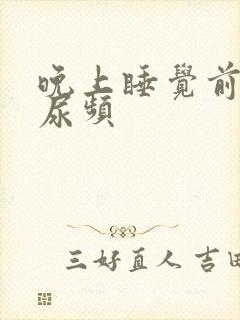 晚上睡覺前
尿頻
三好直人 吉田